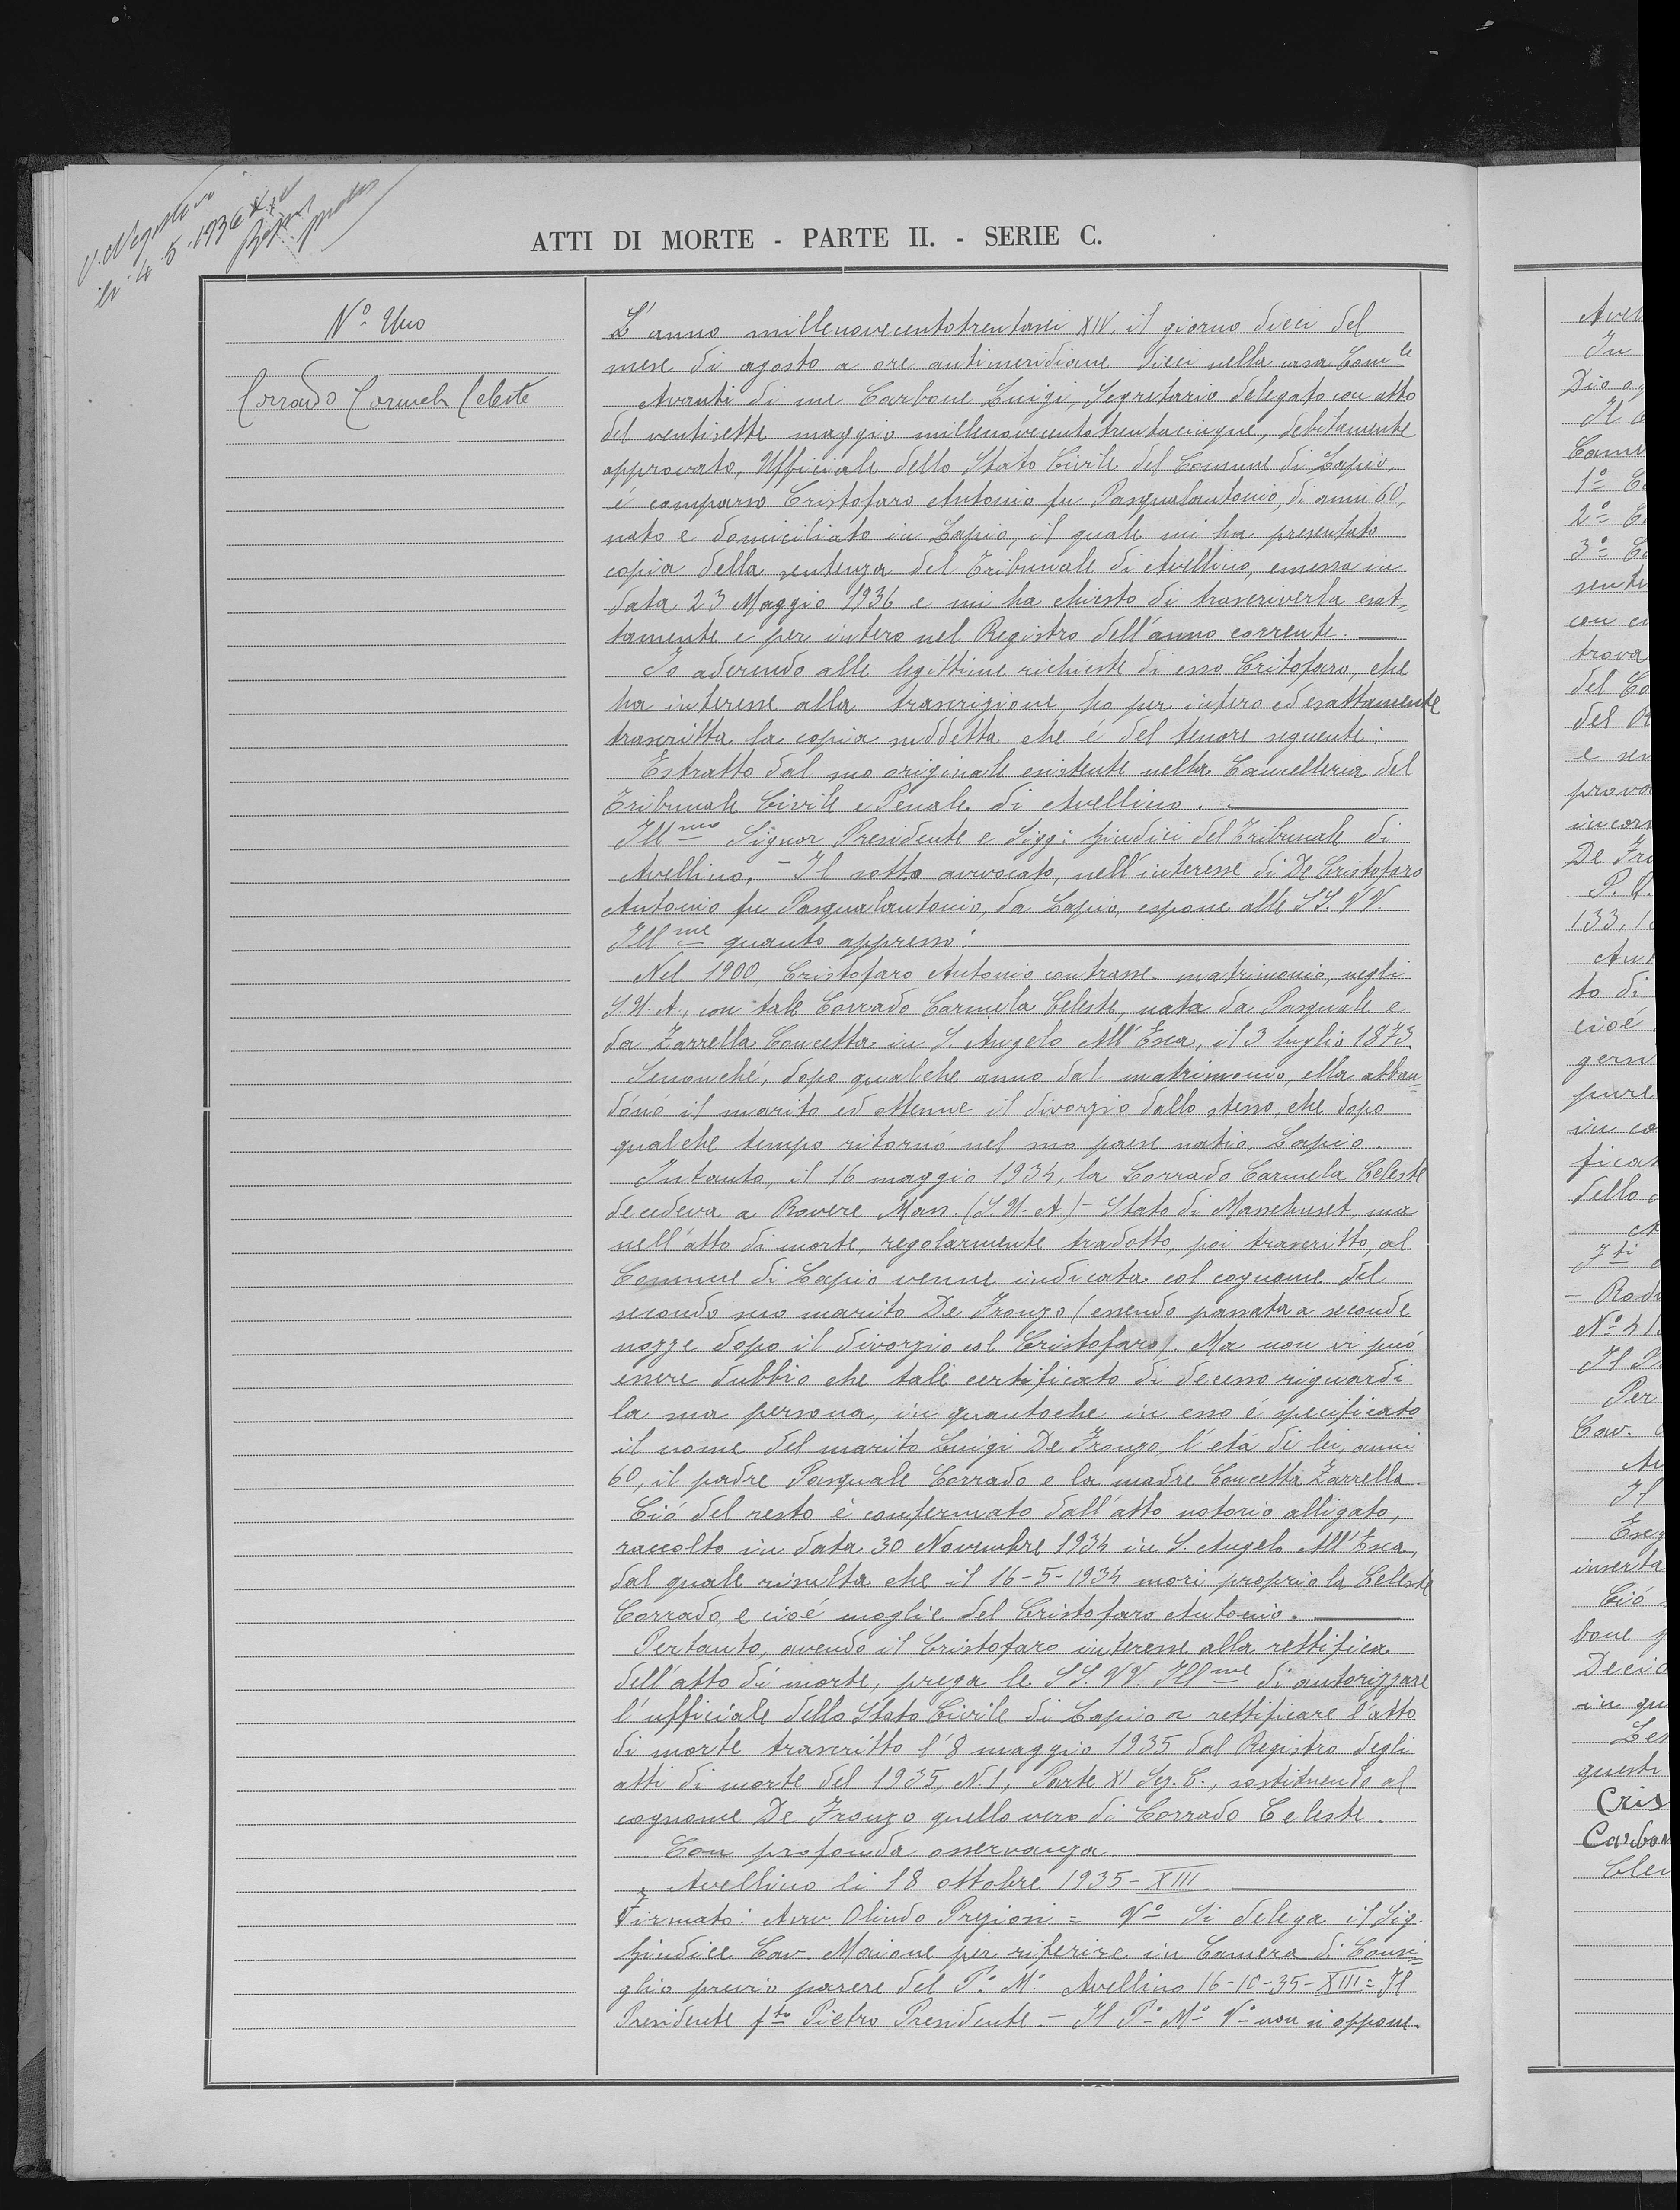 li 4.5.1936 XIV
ATTI DI MORTE - PARTE II. - SERIE C.
N.º Uno
Corrado Carmela Celeste
L'anno millenovecentotrentasei XIV. il giorno dieci del
mese di agosto a ore antimeridiane dieci nella casa Com.le
Avanti di me Carbone Luigi, Segretario delegato con atto
del ventisette maggio millenovecentotrentacinque, debitamente
approvato, Ufficiale dello Stato Civile del Comune di Lapio,
é comparso Cristofaro Antonio fu Pasqualantonio, di anni 60,
nato e domiciliato in Lapio, il quale mi ha presentato
copia della sentenza del Tribunale di Avellino, emessa in
data 23 Maggio 1936 e mi ha chiesto di trascriverla esat=
tamente e per intero nel Registro dell'anno corrente.
Io aderendo alle legittime richieste di esso Critofaro, che
ha interesse alla trascrizione, ho per intero ed esattamente
trascritta la copia suddetta che é del tenore seguente:
Estratto dal suo originale esistente nella Cancelleria del
Tribunale Civile e Penale di Avellino.
Ill.mo Signor Presidente e Sigg: Giudici del Tribunale di
Avellino. - Il sotto avvocato, nell'interesse di De Cristofaro
Antonio fu Pasqualantonio, da Lapio, espone alle SS. VV.
Ill.me quanto appresso:
Nel 1900, Cristofaro Antonio contrasse matrimonio, negli
S.U.A., con tale Corrado Carmela Celeste, nata da Pasquale e
da Zarrella Concetta in S. Angelo All'Esca, il 3 luglio 1873
Senonché, dopo qualche anno dal matrimonio, ella abban=
donó il marito ed ottenne il divorzio dallo stesso, che dopo
qualche tempo ritornó nel suo paese natio, Lapio.
Intanto, il 16 maggio 1934, la Corrado Carmela Celeste
decedeva a Rovere Mass. (S.U.A.) - Stato di Massehuset, ma
nell'atto di morte, regolarmente tradotto, poi trascritto, al
Comune di Lapio venne indicata col cognome del
secondo suo marito De Fronzo (essendo passata a seconde
nozze dopo il divorzio col Cristofaro). Ma non vi puó
essere dubbio che tale certificato di decesso riguardi
la sua persona, in quantoche in esso é specificato
il nome del marito Luigi De Fronzo, l'etá di lei, anni
60, il padre Pasquale Corrado e la madre Concetta Zarrella.
Ció del resto è confermato dall'atto notorio alligato,
raccolto in data 30 Novembre 1934 in S. Angelo All'Esca,
dal quale risulta che il 16-5-1934 mori proprio la Celeste
Corrado, e cioé moglie del Cristofaro Antonio.
Pertanto, avendo il Cristofaro interesse alla rettifica
dell'atto di morte, prega le SS. VV. Ill.me di autorizzare
l'ufficiale dello Stato Civile di Lapio a rettificare l'atto
di morte trascritto l'8 maggio 1935 dal Registro degli
atti di morte del 1935, N. 1, Parte II Ser. C., sostituendo al
cognome De Fronzo quello vero di Corrado Celeste.
Con profonda osservanza
Avellino li 18 ottobre 1935-XIII
Firmato: Avv. Olindo Preziosi = Vº Si delega il Sig.
Giudice Cav. Maione per riferire in Camera di Consi=
glio previo parere del Pº Mº Avellino 16-10-35-XIII = Il
Presidente f.to Pietro Presidente - Il Pº Mº Vº non si oppone.
Avel
In
Dio
Il
1º
2º
3º
con
trova
del Co
del
e
prova
De Fro
P.
133,
to di
cioé
pure
in co
dello
Il
Per
Cav.
Il
inserta
Ció
bone
in qu
questi
Cris
Carbon